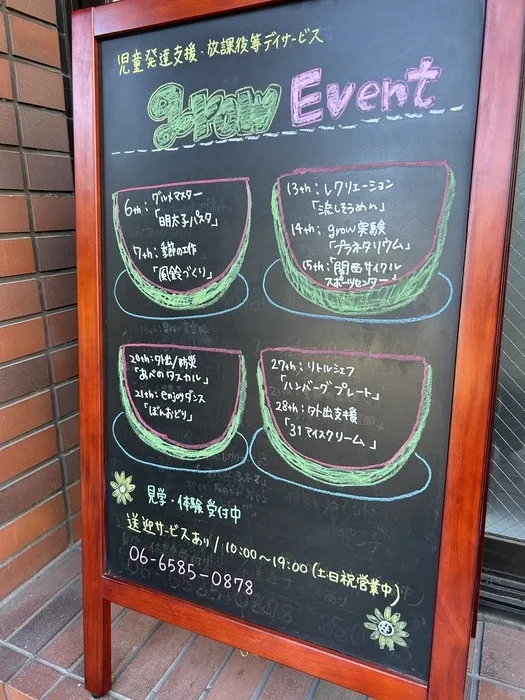 児童発達支援・放課後等デイサービス
grow Event
6th：グルメマスター
「明太子パスタ」
7th：季節の工作
「風鈴づくり」
13th：レクリエーション
「流しそうめん」
14th：grow実験
「プラネタリウム」
15th：「関西サイクル
スポーツセンター」
20th：外出/防災
「あべのタスカル」
21th：enjoyダンス
「ぼんおどり」
27th：リトルシェフ
「ハンバーグプレート」
28th：外出支援
「31アイスクリーム」
見学・体験受付中
送迎サービスあり/10:00〜19:00(土日祝営業中)
06-6585-0878